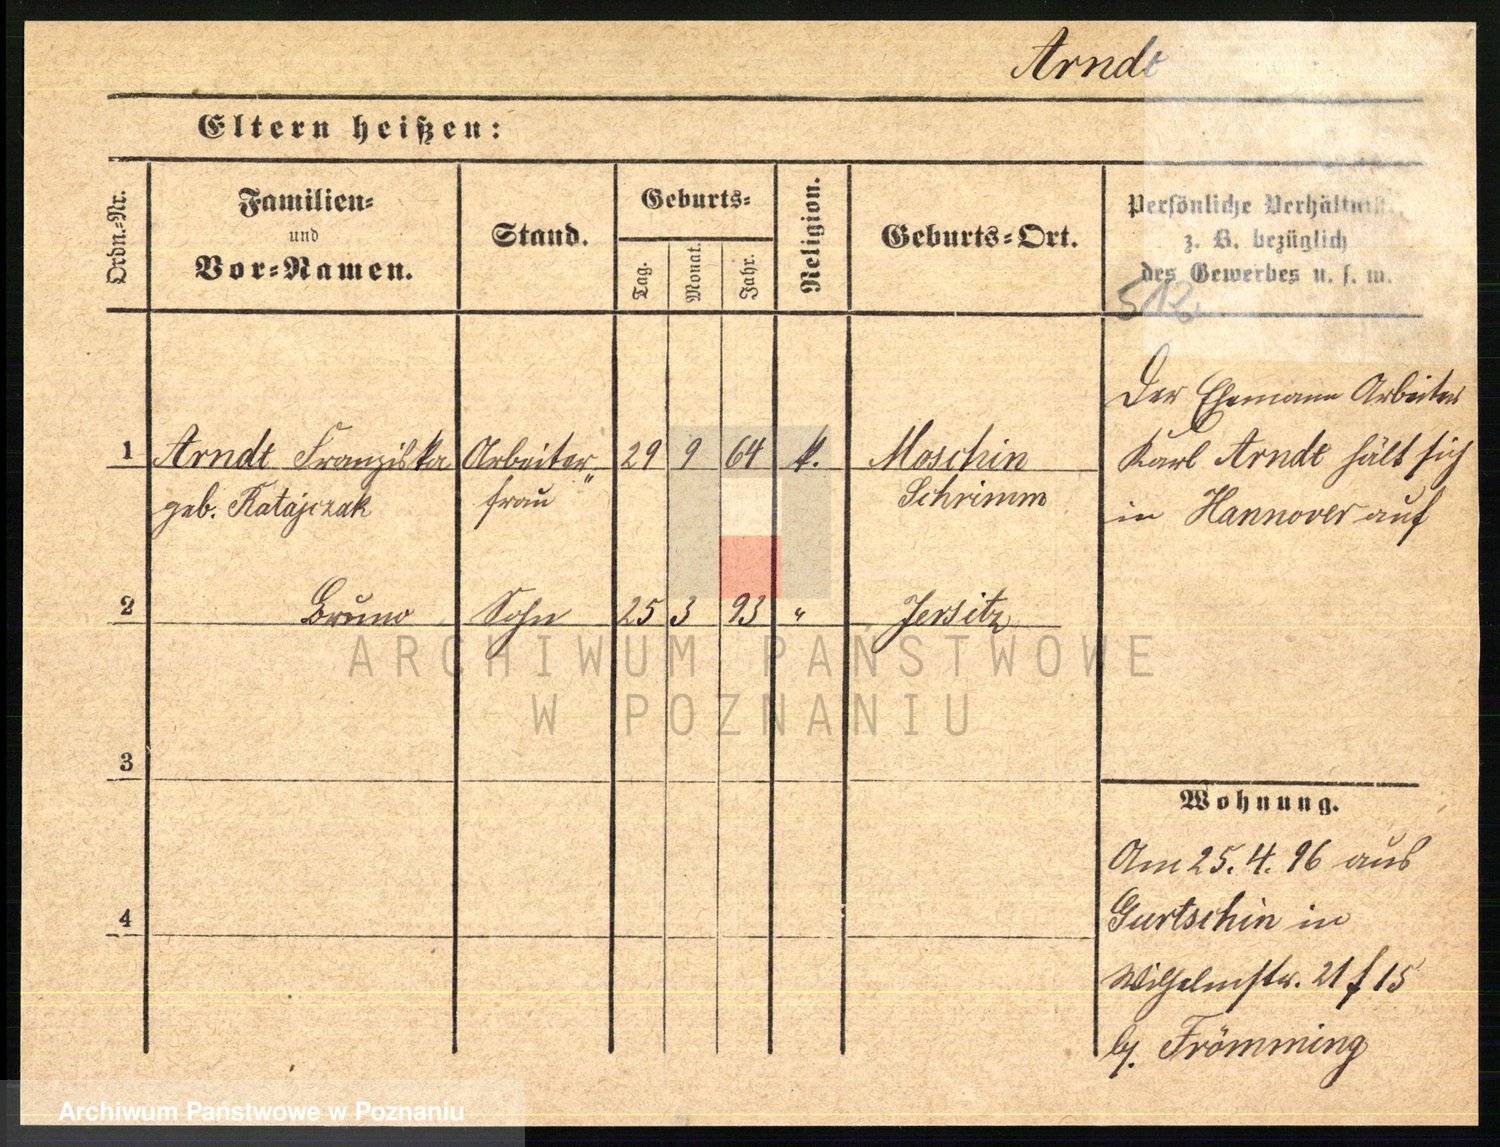 Arndt
Eltern heißen:
Ordn.-Nr.
Familien-
und
Vor-Namen.
Stand.
Geburts-
Tag.
Monat.
Jahr.
Religion.
Geburts-Ort.
Persönliche Verhältniss
z. B. bezüglich
des Gewerbes u. s. w.
512
1 Arndt Franziska Arbeiter 29 9 64 k. Moschin
geb. Ratajczak frau " Schrimm
Der Ehemann Arbeiter
Karl Arndt hält sich
in Hannover auf
2 Bruno Sohn 25 3 93 " Jersitz
ARCHIWUM PAŃSTWOWE
W POZNANIU
3
Wohnung.
Am 25.4.96 aus
Gurtschin in
4
Wilhelmstr. 21 f 15
b. Frömming
Archiwum Państwowe w Poznaniu